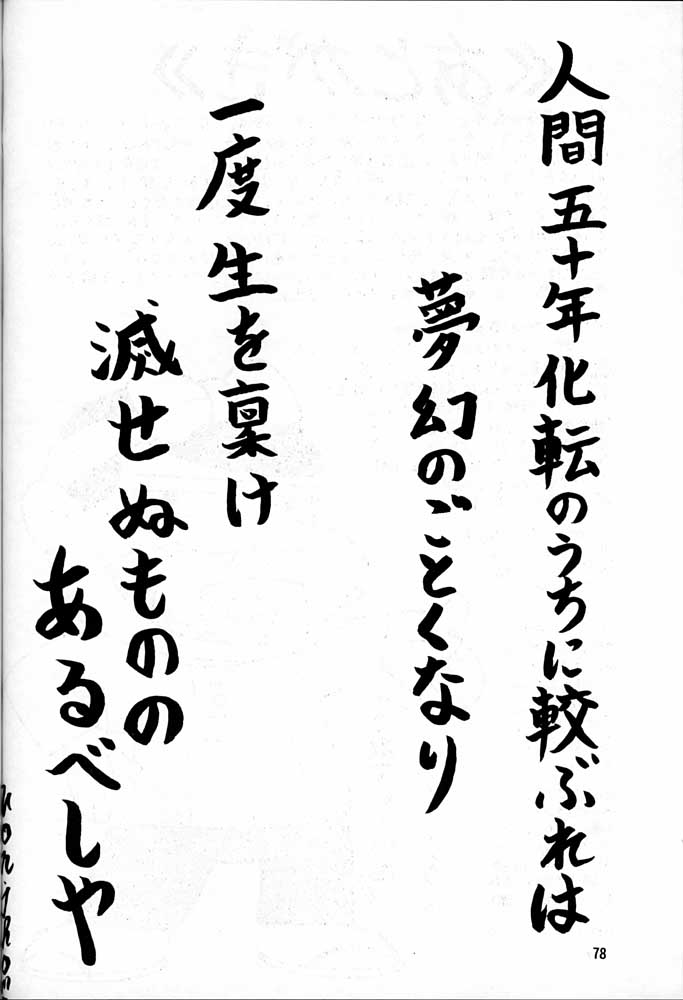 人間五十年化転のうちに較ぶれは
夢幻のごとくなり
一度生を稟け
滅せぬものの
あるべしや
78